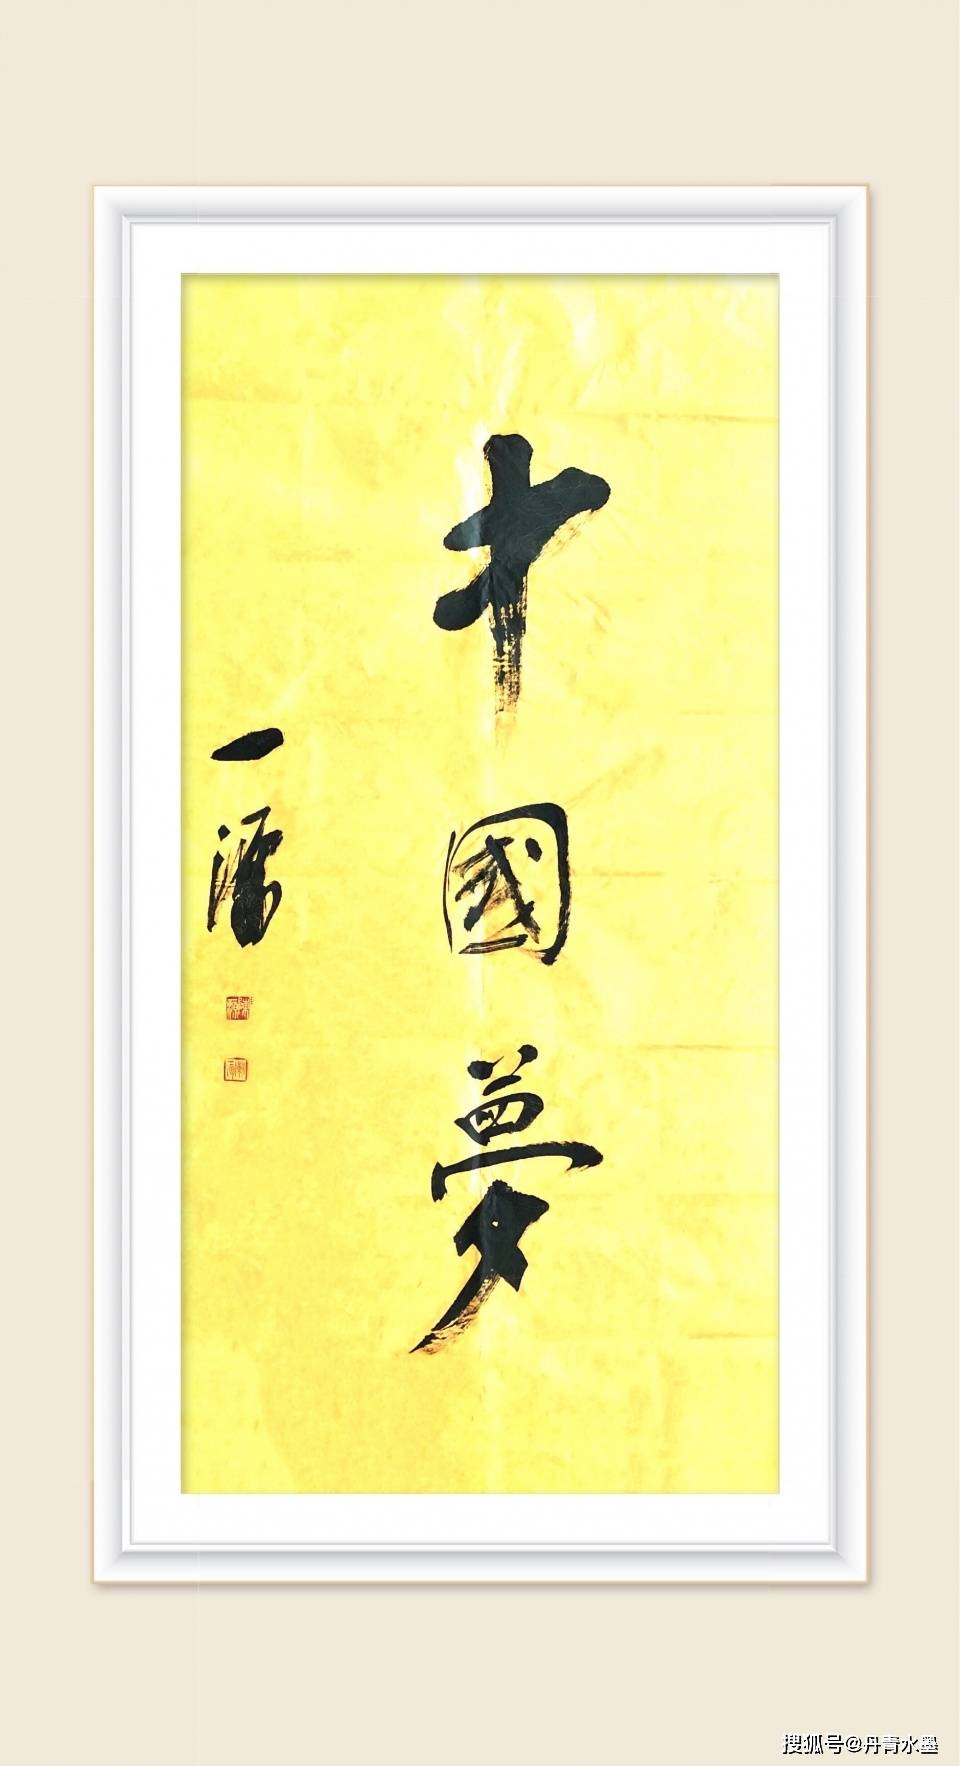 中國夢
一
搜狐号@丹青水墨